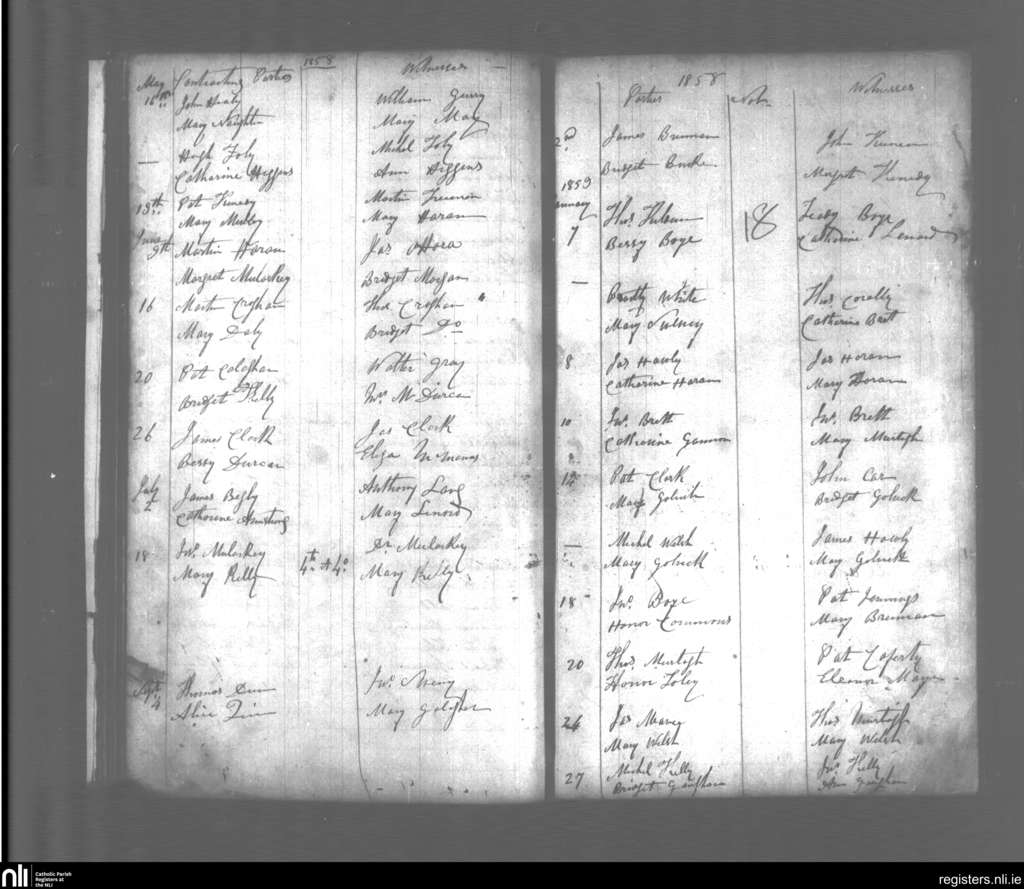 1858
May Contracting Parties Witnesses
16th John Healy William Gurry
Mary Naughton Mary Maly
— Hugh Foly Michel Foly
Catharine Higgens Ann Higgens
19th Pat Kenedy Martin
Mary Mary Haran
June
9th Martin Horan Jas OHora
Margret Mularkey Bridget Morgan
16 Martin Croghan Thos Croghan
Mary Daly Bridget Do
20 Pat Colaghan Walter Gray
Bridget Kelly
26 James Clark Jas Clark
Bessy Durcan Eliza McManus
July
2 James Begly Anthony Lang
Catherine Armstrong Mary Linord
18 Jno. Mularkey Mularkey
Mary Kelly 4th to 4o Mary Kelly
Sept
4 Thomas Jno.
Alice Mary
1858
Parties Witnesses
2nd James Brennan John
Bridget Burke Margret Kenedy
1859
January
7 Thos. 18 Teady Boye
Bessy Boye Catherine Lenard
— White Thos Corally
Mary Catherine Brett
8 Jas Hawly Jas Horan
Catherine Horan Mary Horan
10 Jno. Brett Jno. Brett
Catherine Gannon Mary Murtagh
Pat Clark John Car
Mary Goluck Bridget Goluck
— Michel Welsh James Hawly
Mary Goluck Mary Goluck
18 Jno. Boye Pat Jennings
Honor Commons Mary Brennan
20 Thos. Murtagh Pat Caferty
Honor Foley Eleanor
24 Jas Thos Murtagh
Mary Welsh Mary Welsh
27 Michel Kelly Jno. Kelly
Bridget Gaughan Gaughan
nli
Catholic Parish
Registers at
the NLI
registers.nli.ie